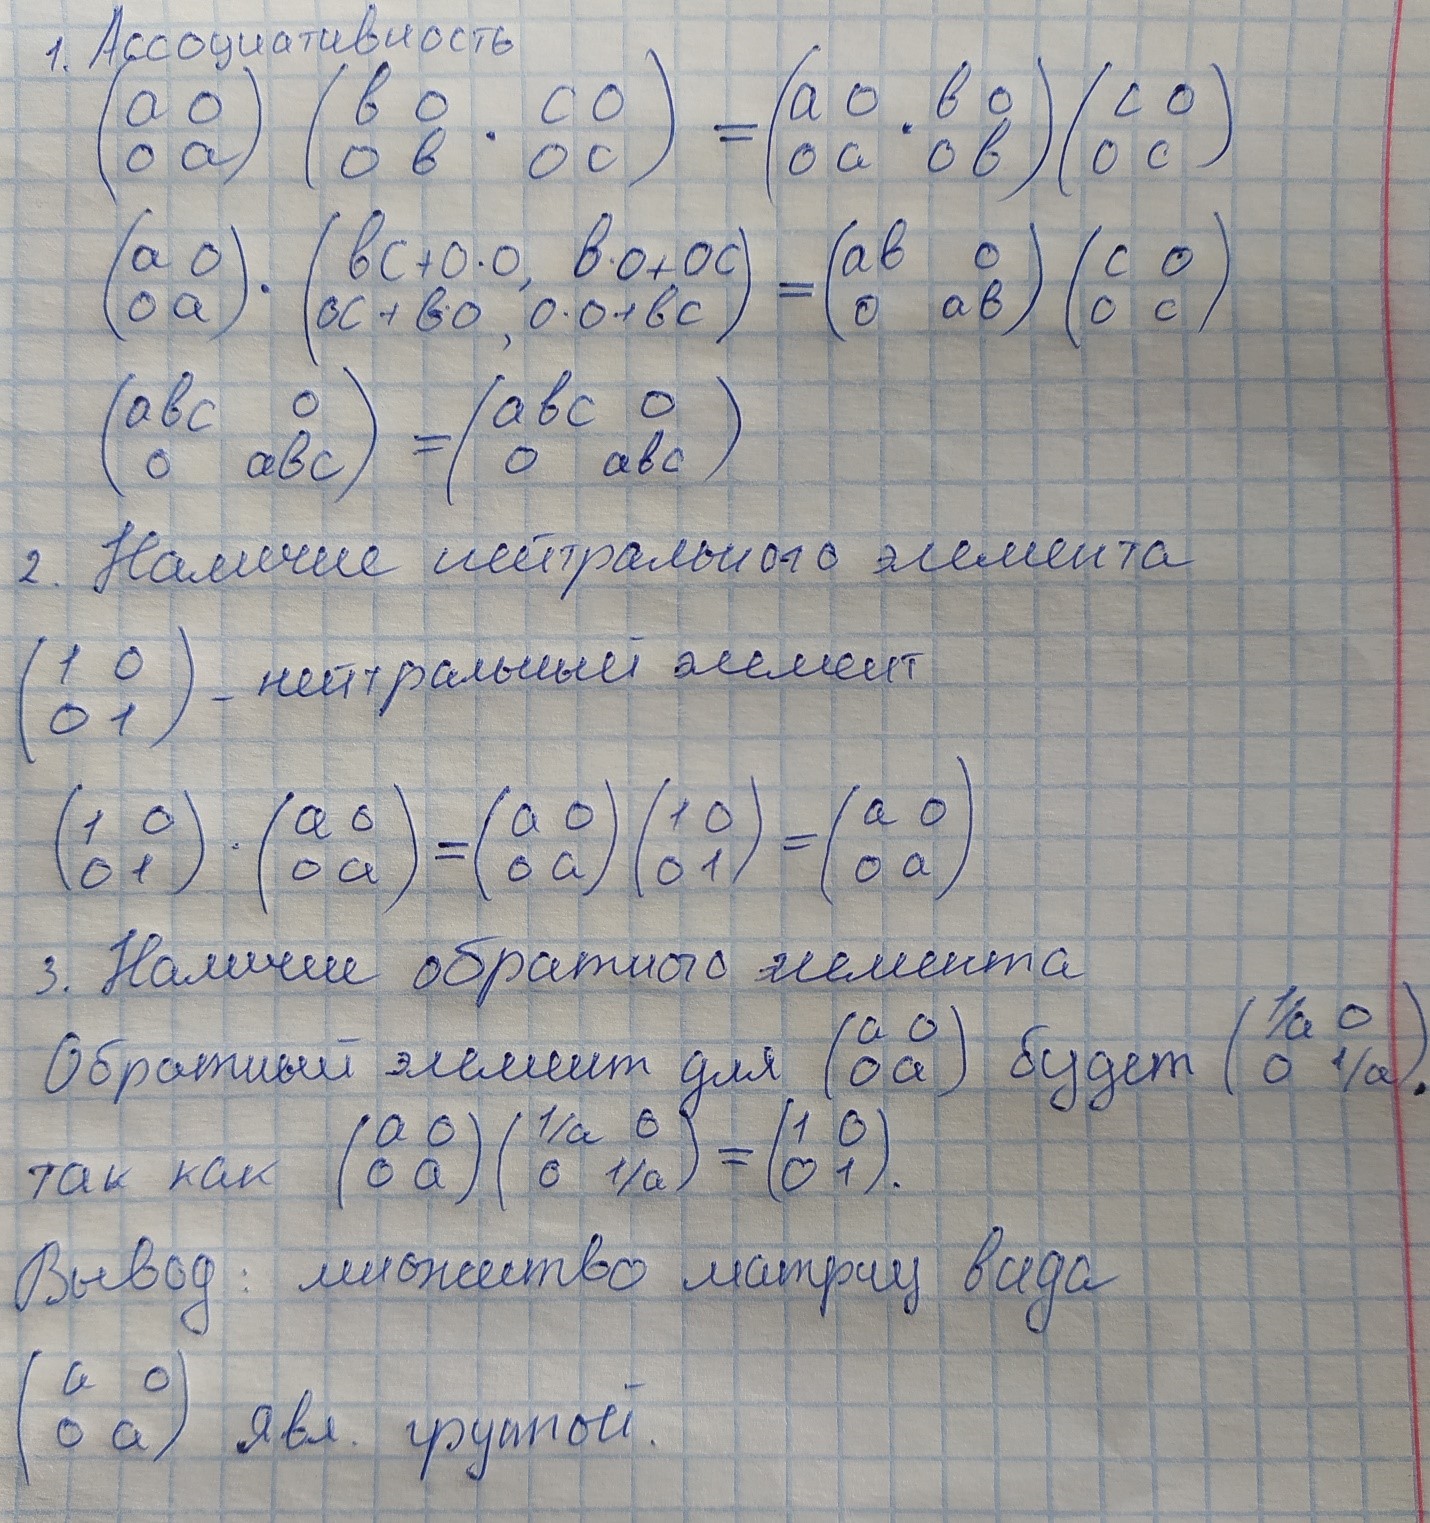 1. Ассоциативность
(a 0 / 0 a) (в 0 / 0 в · c 0 / 0 c) = (a 0 / 0 a · в 0 / 0 в) (c 0 / 0 c)
(a 0 / 0 a) · (вc+0·0, в·0+0c / 0c+в·0, 0·0+вc) = (aв 0 / 0 aв) (c 0 / 0 c)
(aвc 0 / 0 aвc) = (aвc 0 / 0 aвc)
2. Наличие нейтрального элемента
(1 0 / 0 1) - нейтральный элемент
(1 0 / 0 1) · (a 0 / 0 a) = (a 0 / 0 a) (1 0 / 0 1) = (a 0 / 0 a)
3. Наличие обратного элемента
Обратный элемент для (a 0 / 0 a) будет (1/a 0 / 0 1/a).
так как (a 0 / 0 a) (1/a 0 / 0 1/a) = (1 0 / 0 1).
Вывод: множество матриц вида
(a 0 / 0 a) явл. группой.